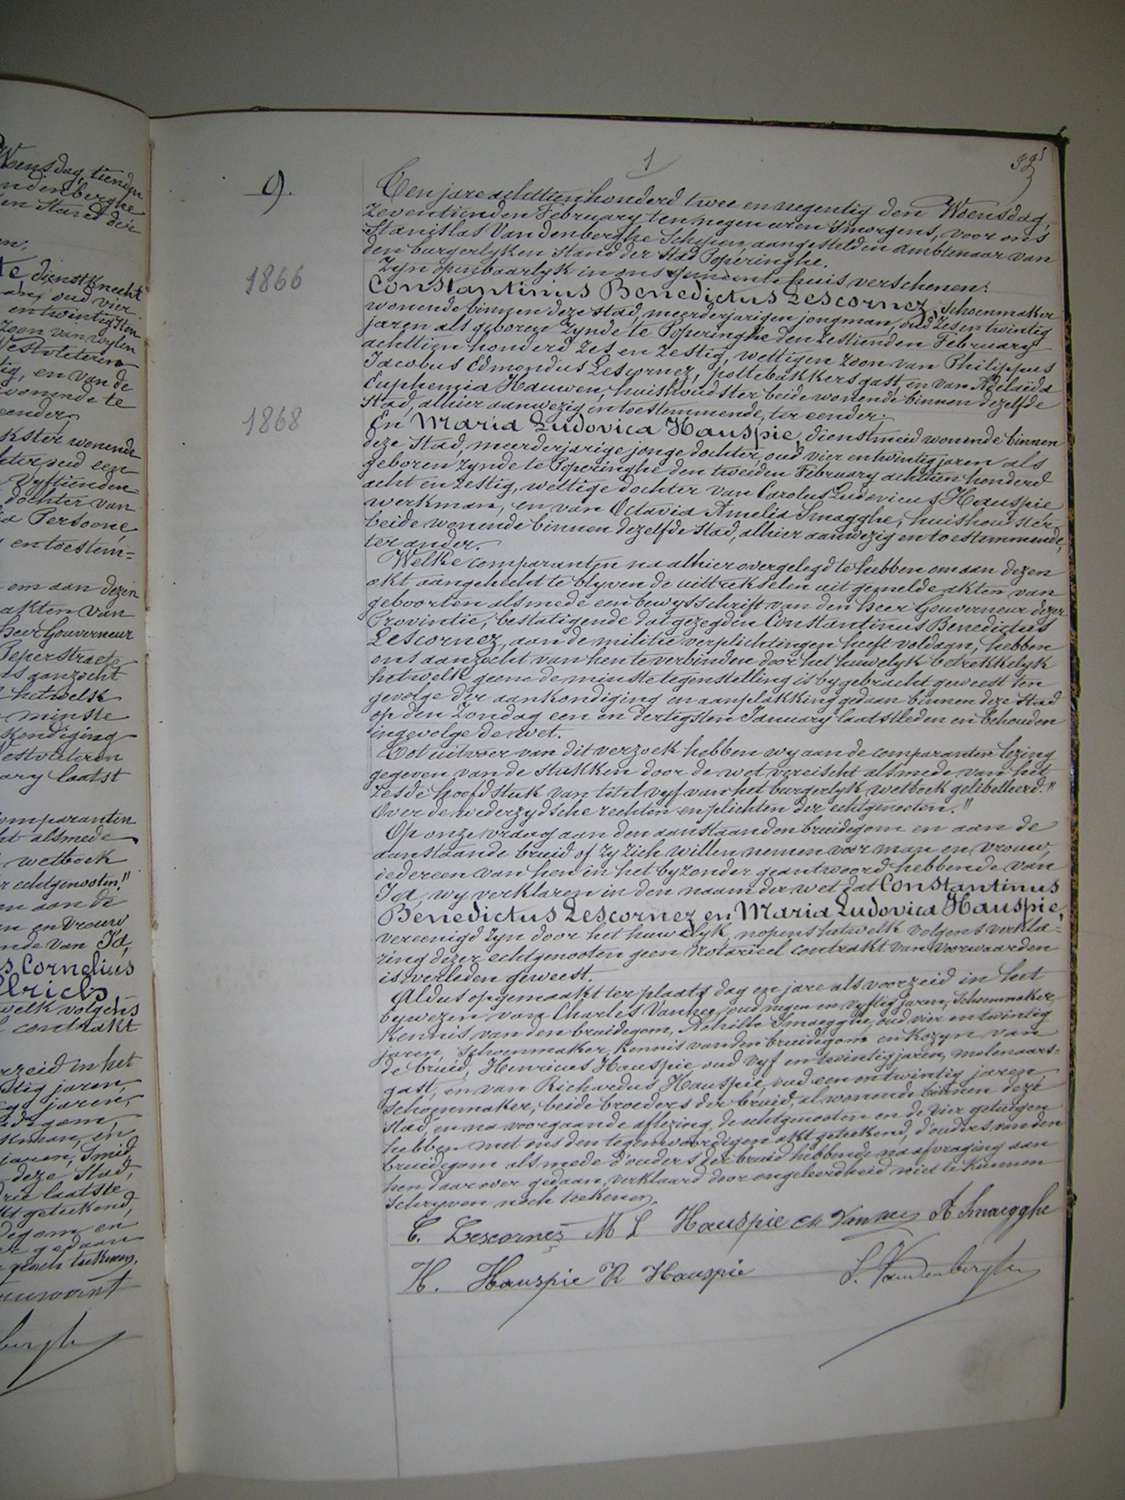 Woensdag, tienden
ndenberghe
en Stand der
en.
te dienstknecht
oud vier
entwintigsten
zoon van wylen
Westvleteren
tig, en van de
wonende te
eender,
kster wonende
eter, oud een
Vyftienden
dochter van
ia Persoone
entoestem=
em aan dezen
akten van
heer Gouverneur
Ieperstraete
ts aanzocht
hetwelk
minste
kondiging
Westvleteren
ary laatst
comparantin
ht alsmede
wetboek
r echtgenooten."
en aan de
en vrouw
nde van Ja,
s Cornelius
welk volgens
contrakt
rzeid in het
tig jaren
jaren,
degom,
kman, en
jaren, Smid,
deze Stad,
rie laatste
kt geteekend,
degom en
gedaan
noch teekenen.
1
9.
Ten jare achttien honderd twee en negentig den Woensdag,
Zeventienden February ten negen uren smorgens, voor ons
Stanislas Vandenberghe Schepen, aangestelden ambtenaar van
den burgerlyken Stand der Stad Poperinghe.
Zyn openbaarlyk in ons gemeentehuis verschenen:
1866
Constantinus Benedictus Lescornez, Schoenmaker
wonende binnen deze stad, meerderjarigen jongman, oud Zes en twintig
jaren als geboren zynde te Poperinghe den Zestienden February
achttien honderd Zes en Zestig, wettigen Zoon van Philippus
Jacobus Edmondus Lescornez, pottebakkersgast, en van Melania
Euphemia Hauwen, huishoudster beide wonende binnen dezelfde
Stad, alhier aanwezig en toestemmende, ter eender.
1868
En Maria Ludovica Hauspie, dienstmeid wonende binnen
deze Stad, meerderjarige jongedochter, oud vier en twintig jaren als
geboren zynde te Poperinghe den tweeden February achttien honderd
acht en Zestig, wettige dochter van Carolus Ludovicus Hauspie
werkman, en van Octavia Amelia Smagghe, huishoudster,
beide wonende binnen dezelfde Stad, alhier aanwezig en toestemmende,
ter ander.
Welke comparanten na alhier overgelegd te hebben om aan dezen
akt aangehecht te blyven de uittrekselen uit gemelde akten van
geboorten alsmede een bewysschrift van den heer Gouverneur dezer
Provintie, bestatigende dat gezegden Constantinus Benedictus
Lescornez, aan de militie verplichtingen heeft voldaan, hebben
ons aanzocht van hen te verbinden door het huwelyk betrekkelyk
hetwelk geene de minste tegenstelling is bygebracht geweest ten
gevolge der aankondiging en aanplakking gedaan binnen deze Stad
op den Zondag een en dertigsten January laatstleden en behouden
ingevolge de wet.
Tot uitvoer van dit verzoek hebben wy aan de comparanten lezing
gegeven van de stukken door de wet vereischt alsmede van het
Zesde hoofdstuk van titel vyf van het burgerlyk wetboek gelibelleerd."
Over de wederzydsche rechten en plichten der echtgenooten."
Op onze vraag aan den aanstaanden bruidegom en aan de
aanstaande bruid of zy zich willen nemen voor man en vrouw,
iedereen van hen in het byzonder geantwoord hebbende van
Ja, wy verklaren in den naam der wet dat Constantinus
Benedictus Lescornez en Maria Ludovica Hauspie,
vereenigd zyn door het huwelyk, nopens hetwelk volgens verkla=
ring dezer echtgenooten geen Notarieel contrakt van voorwaarden
is verleden geweest
Aldus opgemaakt ter plaats dag en jare als voorzeid in het
bywezen van Charles Vanhee, oud negen en vyftig jaren, Schoenmaker,
kennis van den bruidegom, Achille Smaegghe, oud vier en twintig
jaren, Schoenmaker, kennis van den bruidegom en kozyn van
de bruid, Henricus Hauspie oud vyf en twintig jaren, molenaars=
gast, en van Richardus Hauspie, oud een en twintig jaren
Schoenmaker, beide broeders der bruid, al wonende binnen deze
Stad, en na voorgaande aflezing, de echtgenooten en de vier getuigen
hebben met ons den tegenwoordigen akt geteekend, d'ouders van den
bruidegom alsmede d'ouders der bruid hebbende na afvraging aan
hen daarover gedaan, verklaard door ongeleerdheid niet te kunnen
Schryven noch teekenen.
C. Lescornez M L Hauspie Ch Vanhee A Smaegghe
H. Hauspie R Hauspie S. Vandenberghe